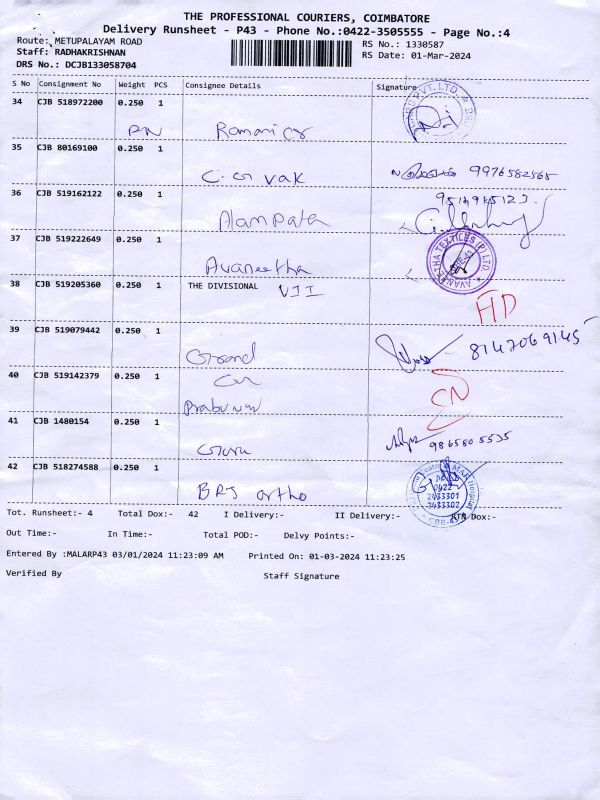 THE PROFESSIONAL COURIERS, COIMBATORE
Delivery Runsheet - P43 - Phone No.:0422-3505555 - Page No.:4
Route: METUPALAYAM ROAD
Staff: RADHAKRISHNAN
DRS No.: DCJB133058704
RS No.: 1330587
RS Date: 01-Mar-2024
S No Consignment No Weight PCS Consignee Details Signature
34 CJB 518972200 0.250 1
35 CJB 80169100 0.250 1
9976582565
36 CJB 519162122 0.250 1
Alampata
37 CJB 519222649 0.250 1
Avaneetha
AVANEETHA TEXTILES (P) LTD
38 CJB 519205360 0.250 1 THE DIVISIONAL VII
HD
39 CJB 519079442 0.250 1
Grand
8147069145
40 CJB 519142379 0.250 1
CN
41 CJB 1480154 0.250 1
Guru
9865805535
42 CJB 518274588 0.250 1
BRJ ortho
0422
2433301
2433302
Tot. Runsheet:- 4 Total Dox:- 42 I Delivery:- II Delivery:- RTN Dox:-
Out Time:- In Time:- Total POD:- Delvy Points:-
Entered By :MALARP43 03/01/2024 11:23:09 AM Printed On: 01-03-2024 11:23:25
Verified By Staff Signature